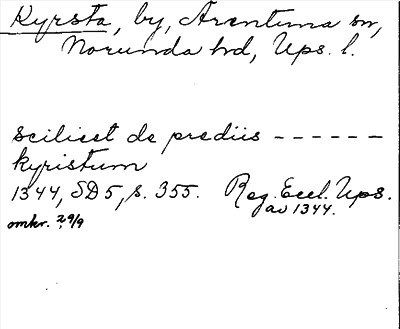 Kyrsta, by, Arentuna sn,
Norunda hd, Ups. l.
scilicet de prediis ------
kyristum
1344, SD 5, s. 355. Reg. Eccl. Ups.
av 1344.
omkr. 29/9